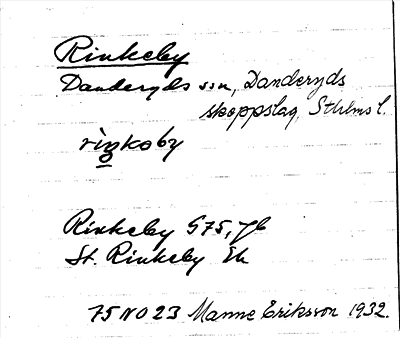 Rinkeby
Danderyds ssn, Danderyds
skeppslag, Sthlms l.
riŋkəby
Rinkeby G75, Jb
St. Rinkeby Ek
75 NO 23 Manne Eriksson 1932.